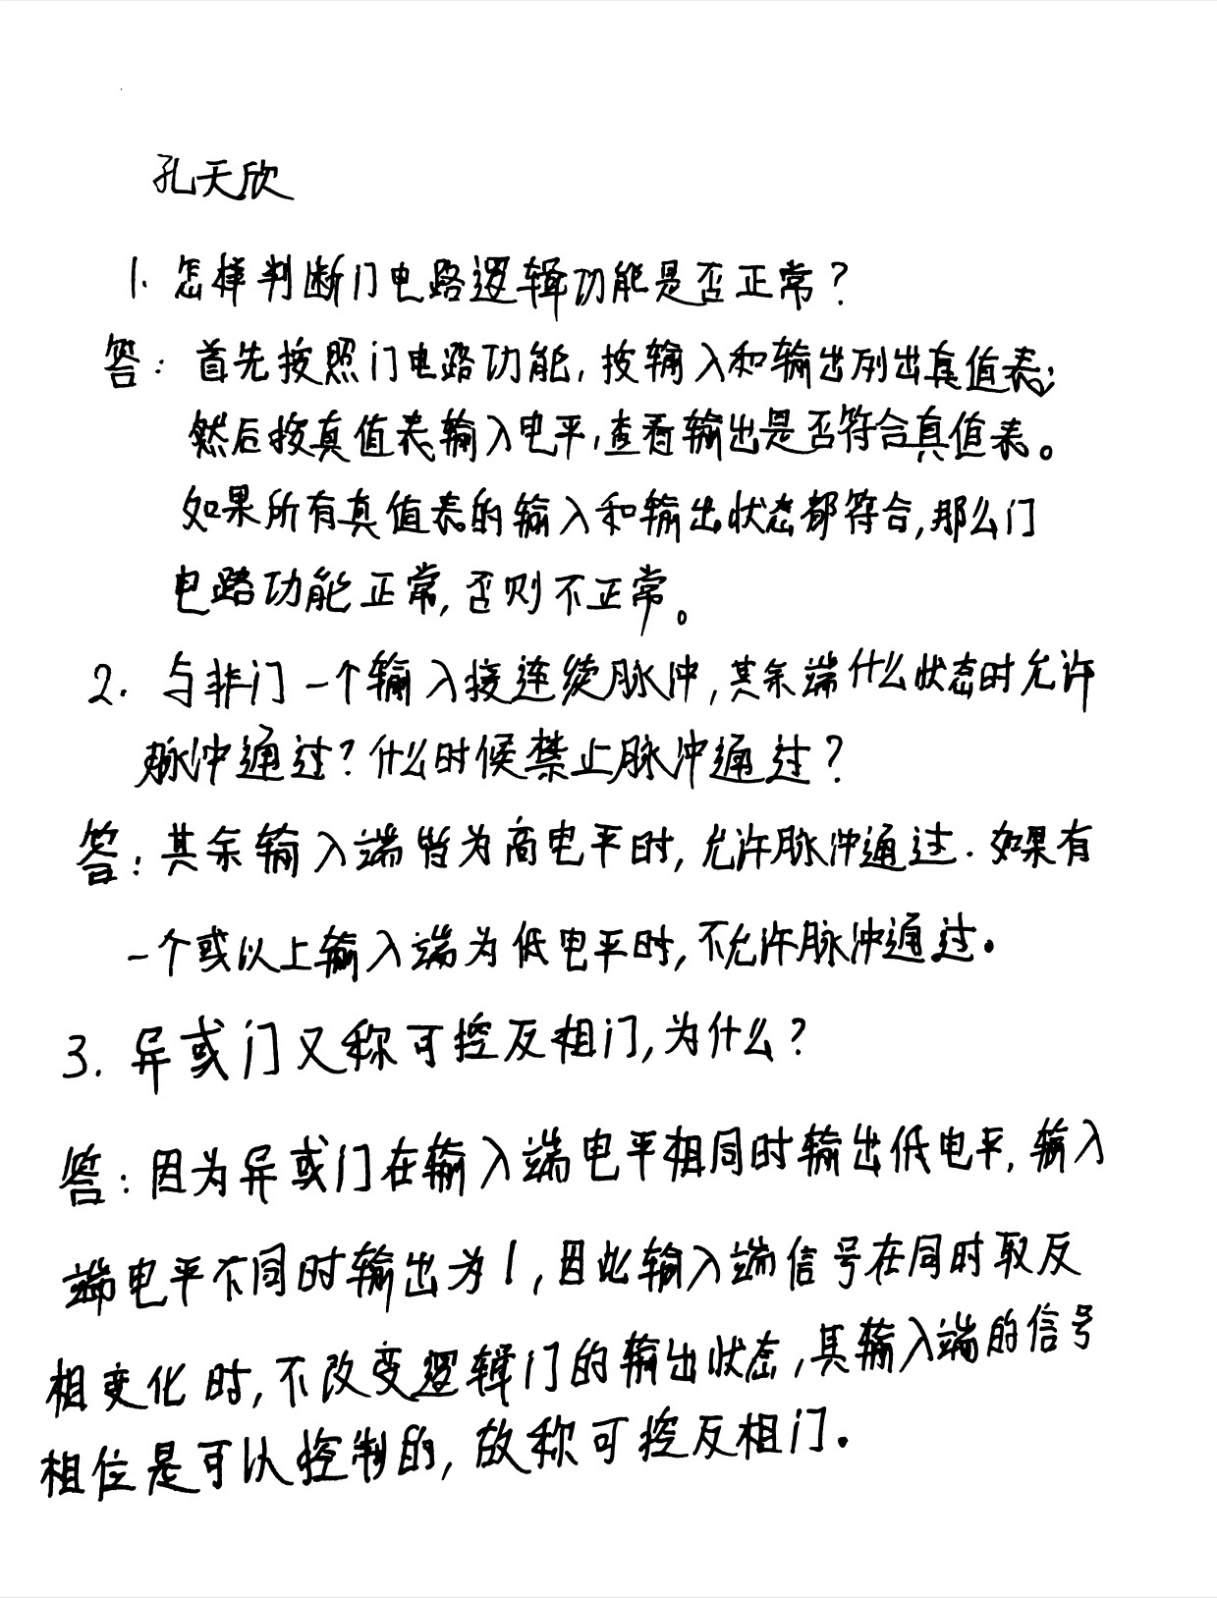 孔天欣
1. 怎样判断门电路逻辑功能是否正常?
答: 首先按照门电路功能,按输入和输出列出真值表;
然后按真值表输入电平,查看输出是否符合真值表。
如果所有真值表的输入和输出状态都符合,那么门
电路功能正常,否则不正常。
2. 与非门一个输入接连续脉冲,其余端什么状态时允许
脉冲通过?什么时候禁止脉冲通过?
答:其余输入端皆为高电平时,允许脉冲通过.如果有
一个或以上输入端为低电平时,不允许脉冲通过。
3. 异或门又称可控反相门,为什么?
答:因为异或门在输入端电平相同时输出低电平,输入
端电平不同时输出为1,因此输入端信号在同时取反
相变化时,不改变逻辑门的输出状态,其输入端的信号
相位是可以控制的,故称可控反相门。